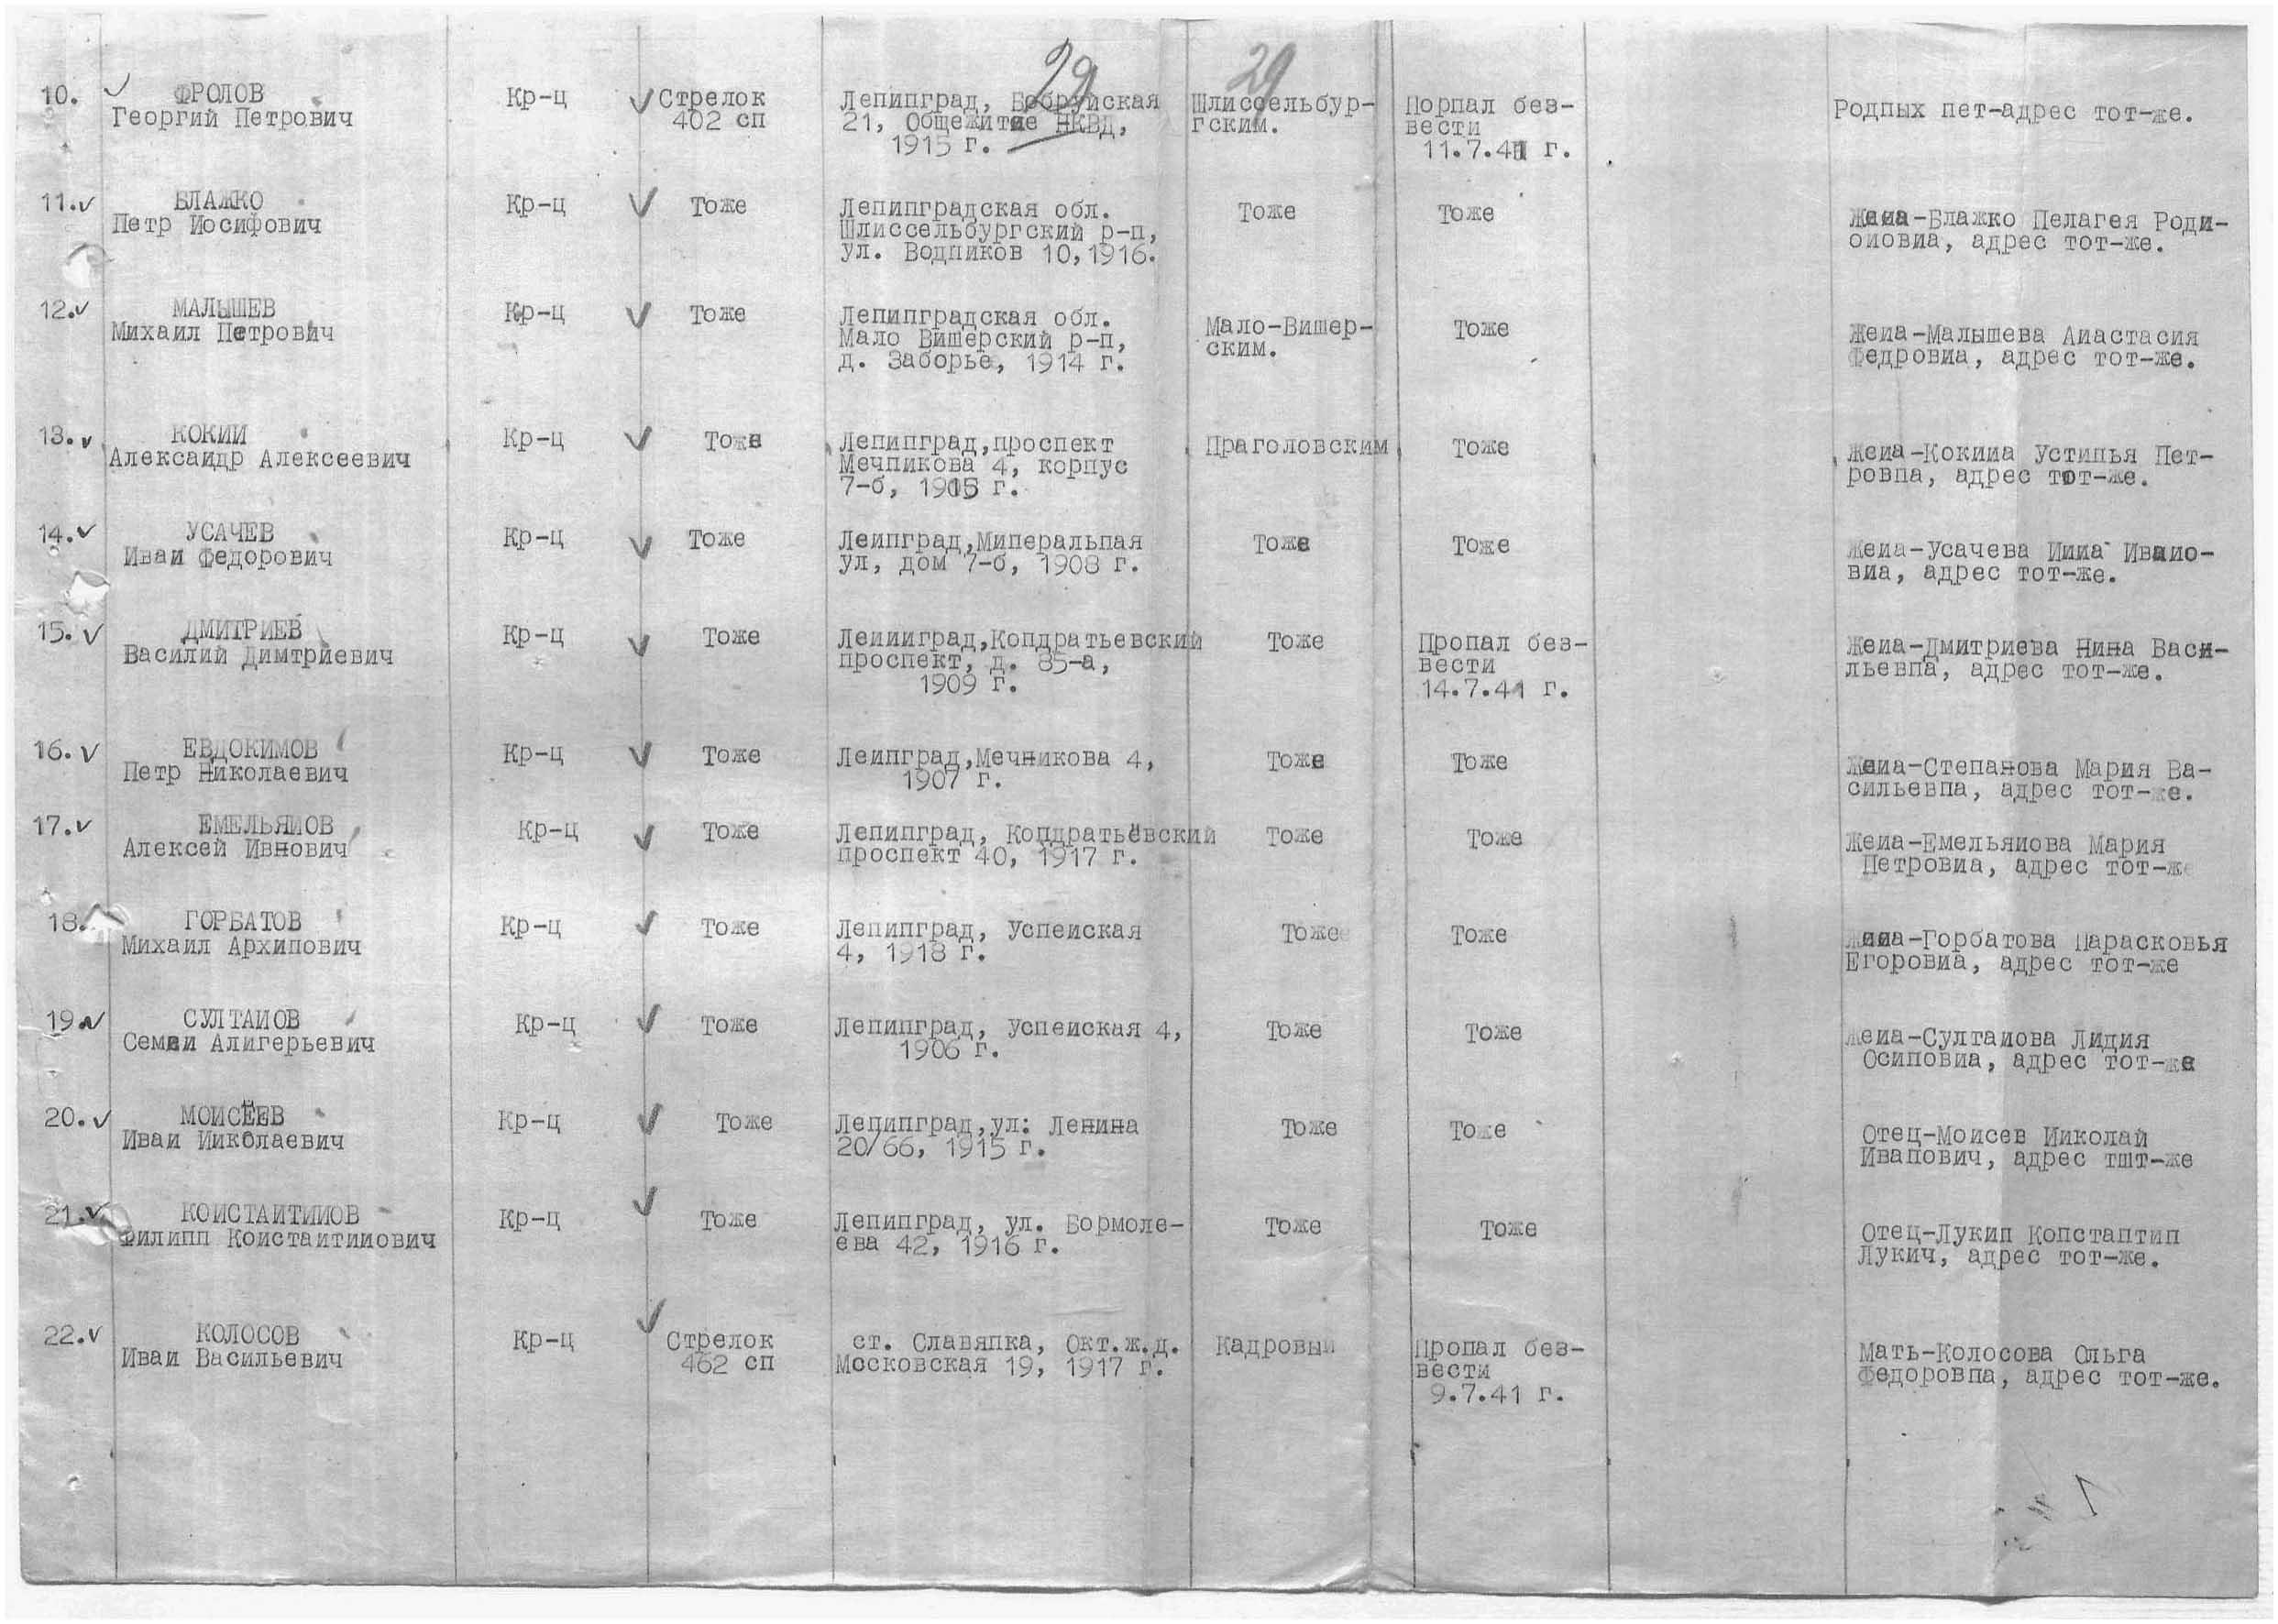 29 29
10. ФРОЛОВ Кр-ц Стрелок Лепипград, Бобруйская Шлиссельбур- Порпал без- Родпых пет-адрес тот-же.
Георгий Петрович 402 сп 21, Общежитие НКВД, гским. вести
1915 г. 11.7.41 г.
11. БЛАЖКО Кр-ц Тоже Лепипградская обл. Тоже Тоже Жеиа-Блажко Пелагея Роди-
Петр Иосифович Шлиссельбургский р-п, оиовиа, адрес тот-же.
ул. Водпиков 10,1916.
12. МАЛЫШЕВ Кр-ц Тоже Лепипградская обл. Мало-Вишер- Тоже Жеиа-Малышева Аиастасия
Михаил Петрович Мало Вишерский р-п, ским. Федровиа, адрес тот-же.
д. Заборье, 1914 г.
13. КОКИИ Кр-ц Тоже Лепипград,проспект Праголовским Тоже Жеиа-Кокииа Устипья Пет-
Алексаидр Алексеевич Мечпикова 4, корпус ровпа, адрес тот-же.
7-б, 1905 г.
14. УСАЧЕВ Кр-ц Тоже Леипград,Миперальпая Тоже Тоже Жеиа-Усачева Иииа Иваио-
Иваи Федорович ул, дом 7-б, 1908 г. виа, адрес тот-же.
15. ДМИТРИЕВ Кр-ц Тоже Леиииград,Копдратьевский Тоже Пропал без- Жеиа-Дмитриева Нина Васи-
Василий Димтриевич проспект, д. 85-а, вести льевпа, адрес тот-же.
1909 г. 14.7.41 г.
16. ЕВДОКИМОВ Кр-ц Тоже Леипград,Мечникова 4, Тоже Тоже Жеиа-Степанова Мария Ва-
Петр Николаевич 1907 г. сильевпа, адрес тот-же.
17. ЕМЕЛЬЯИОВ Кр-ц Тоже Лепипград, Копдратьёвский Тоже Тоже Жеиа-Емельяиова Мария
Алексей Ивнович проспект 40, 1917 г. Петровиа, адрес тот-же
18. ГОРБАТОВ Кр-ц Тоже Лепипград, Успеиская Тоже Тоже Жииа-Горбатова Парасковья
Михаил Архипович 4, 1918 г. Егоровиа, адрес тот-же
19. СУЛТАИОВ Кр-ц Тоже Лепипград, Успеиская 4, Тоже Тоже Жеиа-Султаиова Лидия
Семеи Алигерьевич 1906 г. Осиповиа, адрес тот-же
20. МОИСЁЕВ Кр-ц Тоже Лепипград,ул: Ленина Тоже Тоже Отец-МоисевИиколай
Иваи Ииколаевич 20/66, 1915 г. Ивапович, адрес тшт-же
21. КОИСТАИТИИОВ Кр-ц Тоже Лепипград, ул. Бормоле- Тоже Тоже Отец-Лукип Копстаптип
Филипп Коистаитииович ева 42, 1916 г. Лукич, адрес тот-же.
22. КОЛОСОВ Кр-ц Стрелок ст. Славяпка, Окт.ж.д. Кадровый Пропал без- Мать-Колосова Ольга
Иваи Васильевич 462 сп Московская 19, 1917 г. вести Федоровпа, адрес тот-же.
9.7.41 г.